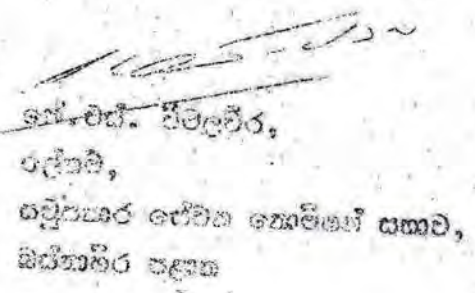 කේ.එස්. විමලවීර,
ලේකම්,
සමුපකාර සේවක කොමිෂන් සභාව,
බස්නාහිර පළාත